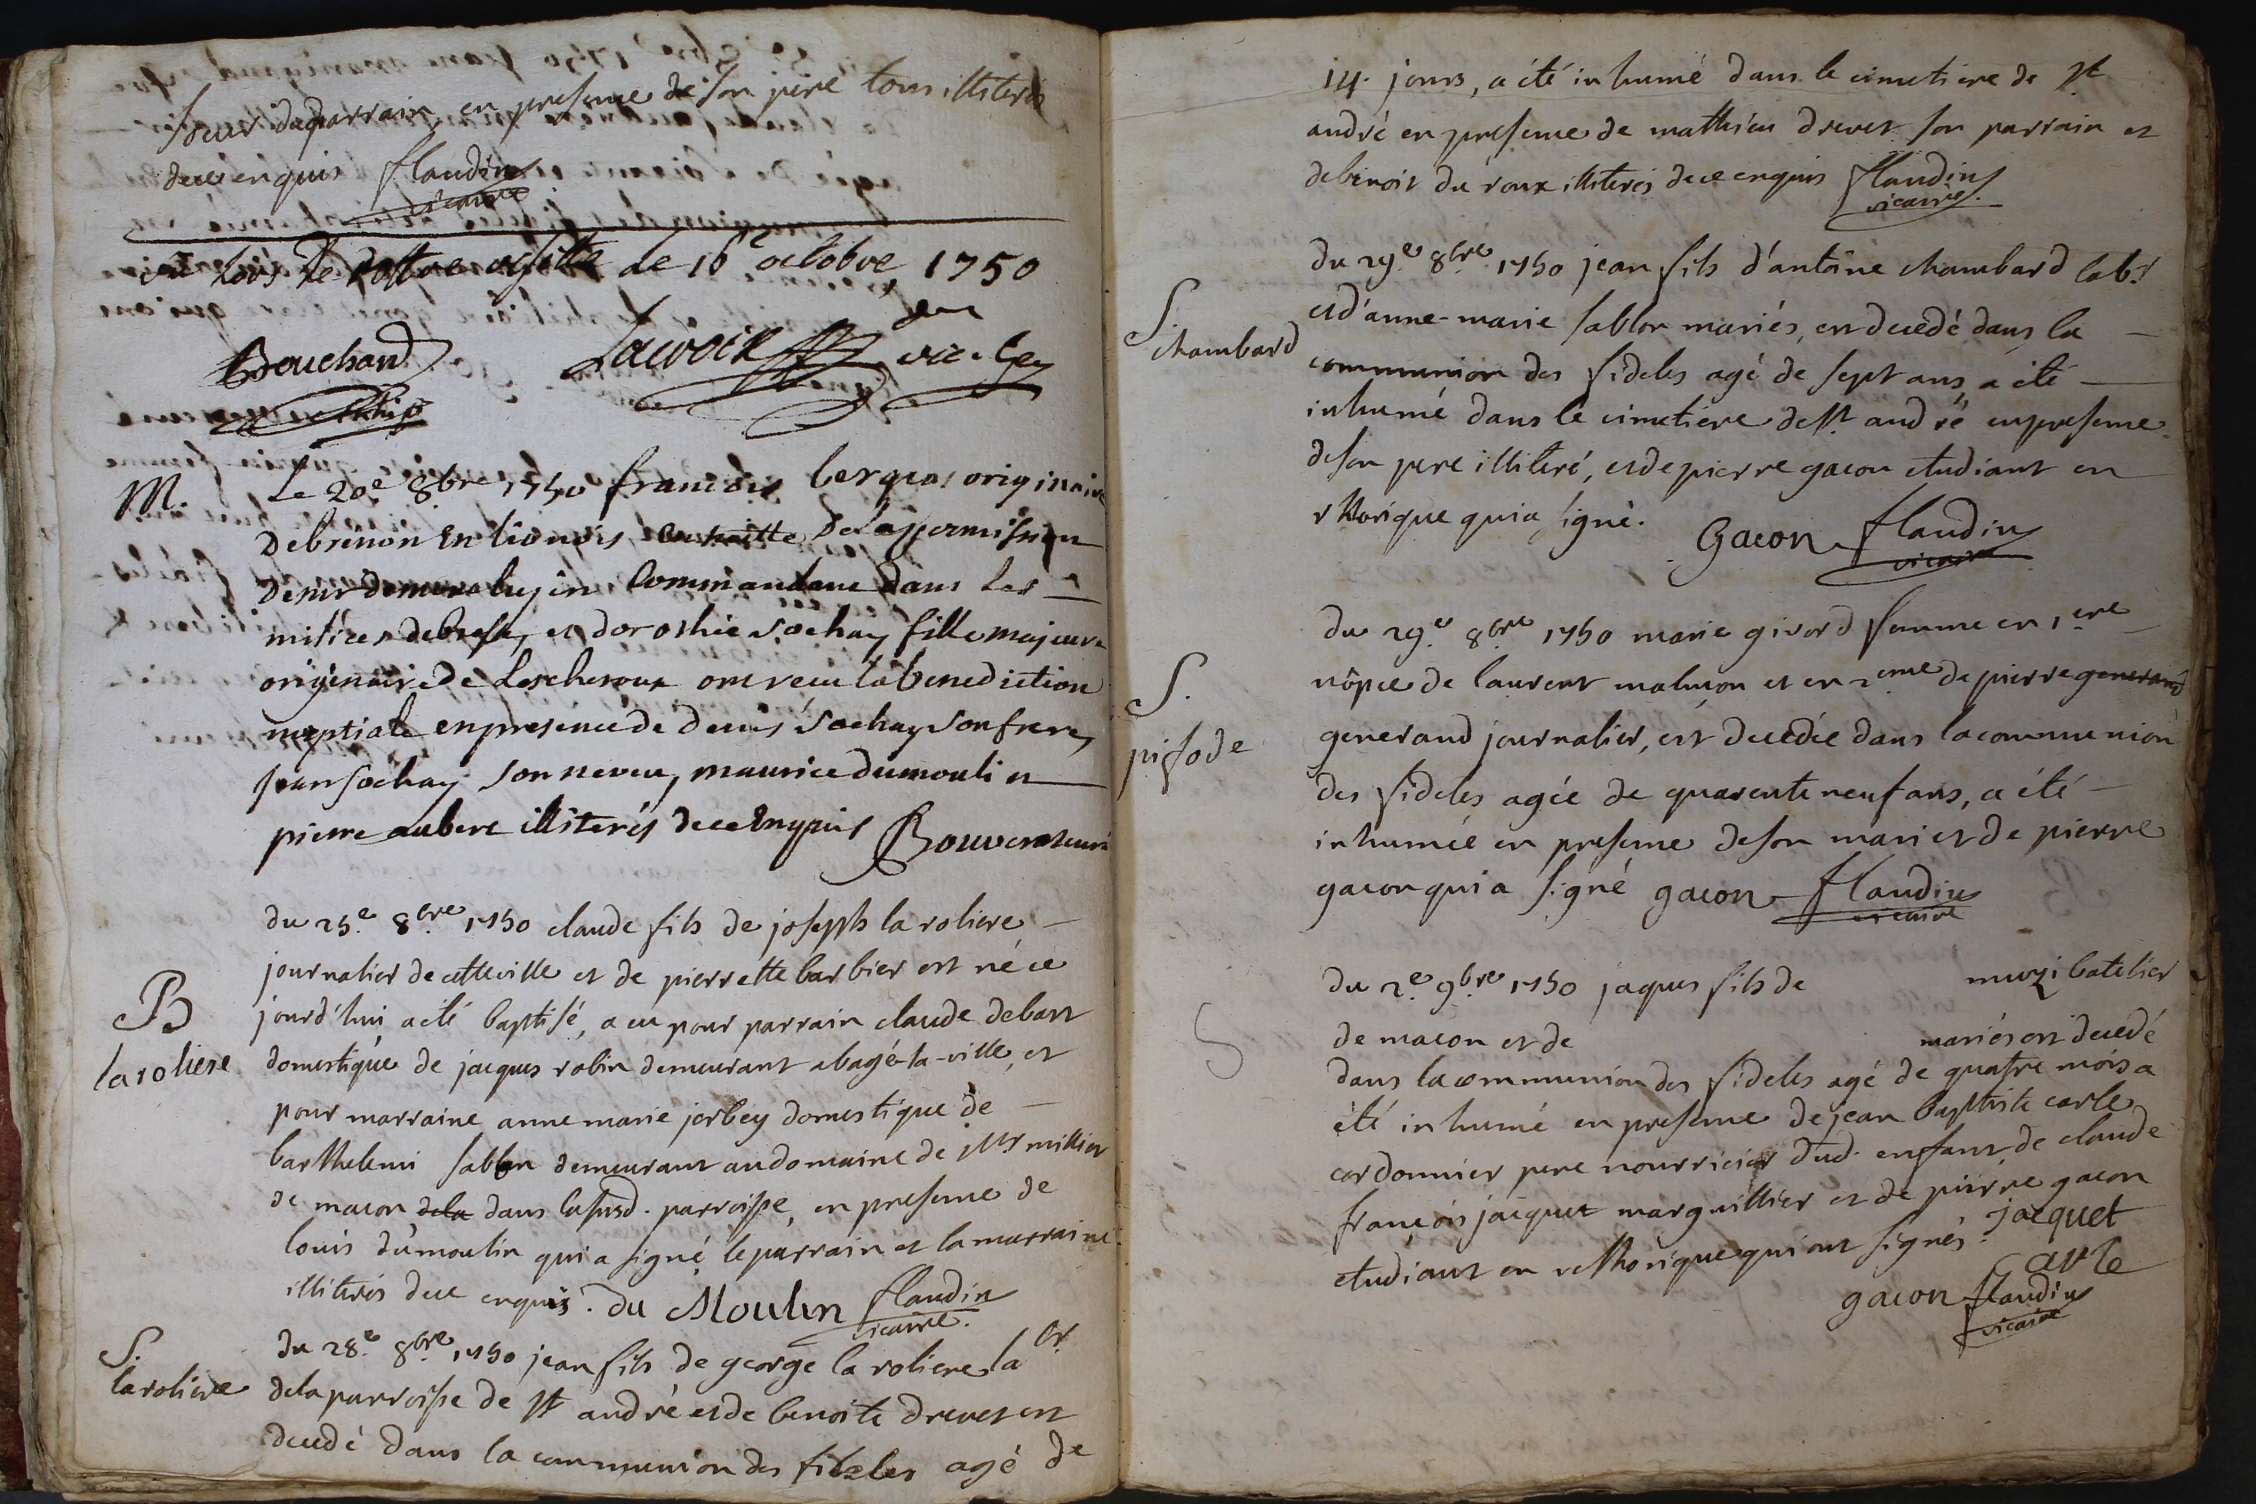 Soeur du parrain, en presence de son pere tous illiterés
de ce enquis flandin
vicaire
vu lors de nostre visitte de 16e octobre 1750
Bouchard Lacroix vic. gen
archip
M.
Le 20e 8bre 1750 francois berquas originaire
de brenon en lionois, de la permission
de mr commandant dans les
milices de bresse, et dorothée sochay fille majeure
originaire de Lescheroux ont recu la benediction
nuptiale en presence de denis sochay son frere,
jean sochay son neveu, maurice dumouli et
pierre aubert illiterés de ce Enquis Bouver
B
la roliere
du 25e 8bre 1750 claude fils de joseph la roliere
journalier de cette ville et de pierrette barbier est né ce
jourd'hui a été baptisé, a eu pour parrain claude debost
domestique de jacques robin demeurant a bagé-la-ville, et
pour marraine anne marie jorbey domestique de
barthelemi sablon demeurant au domaine de Mr millier
de macon dela dans la susd. parroisse, en presence de
louis du moulin qui a signé le parrain et la marraine
illiterés de ce enquis. du Moulin flandin
vicaire.
S.
la roliere
du 28e 8bre 1750 jean fils de george la roliere labr
de la parroisse de st andré et de benoite drevet est
decedé dans la communion des fideles agé de
14. jours, a été inhumé dans le cimetiere de st
andré en presence de mathieu drevet son parrain et
de benoit du roux illiterés de ce enquis flandin
vicaire.
S.
chambard
du 29e 8bre 1750 jean fils d'antoine chambard labr
et d'anne-marie sablon mariés, est decedé dans la
communion des fideles agé de sept ans a été
inhumé dans le cimetiere de st andré en presence
de son pere illiteré, et de pierre gacon etudiant en
rhorique qui a signé. Gacon flandin
vicaire
S.
pisode
du 29e 8bre 1750 marie givord femme en 1ere
nôpce de laurent malmon et en 2eme de pierre generand
generand journalier, est decedée dans la communion
des fideles agée de quarente neuf ans, a été
inhumée en presence de son mari et de pierre
gacon qui a signé gacon flandin
vicaire
S
du 2e 9bre 1750 jaques fils de muzi batelier
de macon et de mariés est decedé
dans la communion des fideles agé de quatre mois a
été inhumé en presence de jean baptiste carle
cordonnier pere nourricier dud. enfant de claude
françois jacquet marguillier et de pierre gacon
etudiant en rethorique qui ont signés. jacquet
carle
gacon flandin
vicaire